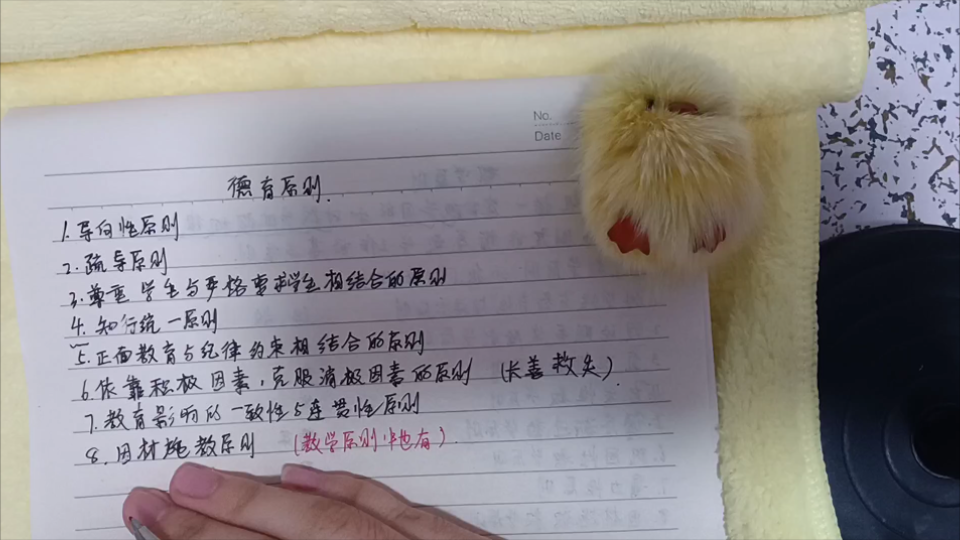 No.
Date
德育原则.
1.导向性原则
2.疏导原则
3.尊重学生与严格要求学生相结合的原则
4.知行统一原则
5.正面教育与纪律约束相结合的原则
6.依靠积极因素,克服消极因素的原则 (长善救失).
7.教育影响的一致性与连贯性原则
8.因材施教原则 (教学原则中也有).